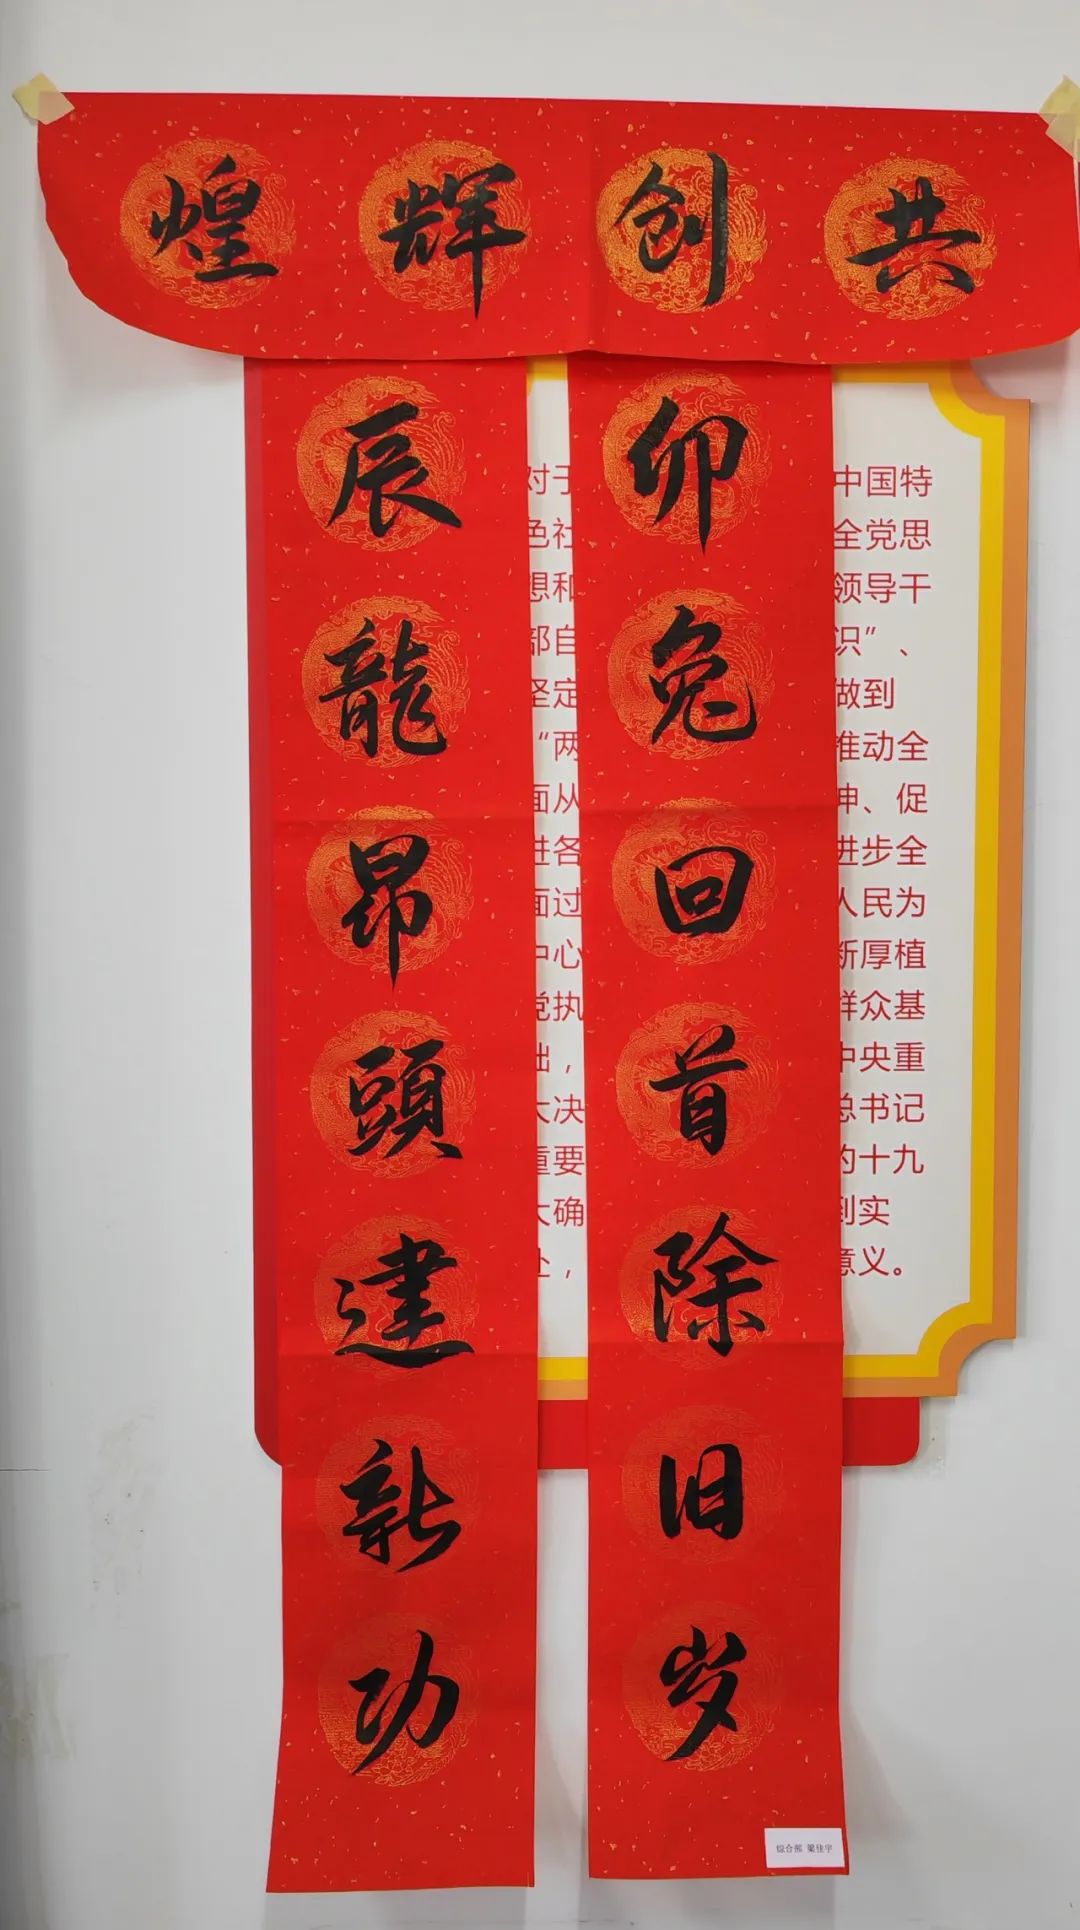 共创辉煌
卯兔回首除旧岁
辰龍昂頭建新功
对于 中国特
色社 全党思
想和 领导干
部自 识”、
坚定 做到
“两 推动全
面从 伸、促
进各 进步全
面过 人民为
中心 断厚植
党执 群众基
础， 中央重
大决 总书记
重要 的十九
大确 到实
处， 意义。
综合部 梁佳宇